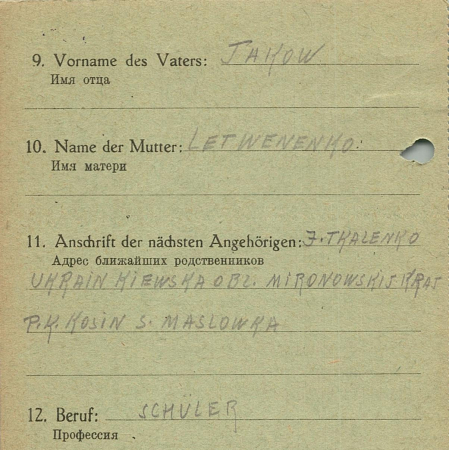 9. Vorname des Vaters: JAKOW
Имя отца
10. Name der Mutter: LETWENENKO.
Имя матери
11. Anschrift der nächsten Angehörigen: J. TKALENKO
Адрес ближайших родственников
UKRAIN KIEWSKA OBL. MIRONOWSKIJ KRAJ
P.K. KOSIN S. MASLOWKA
12. Beruf: SCHÜLER
Профессия